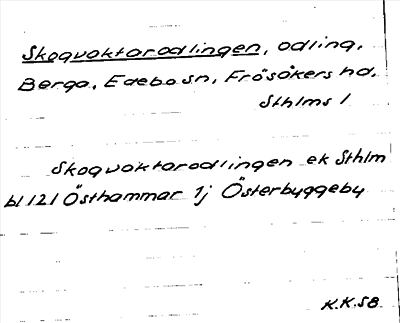 Skogvaktarodlingen, odling,
Berga, Edebo sn, Frösåkers hd,
Sthlms l
Skogvaktarodlingen ek Sthlm
bl 121 Östhammar 1j Österbyggeby
K.K. 58